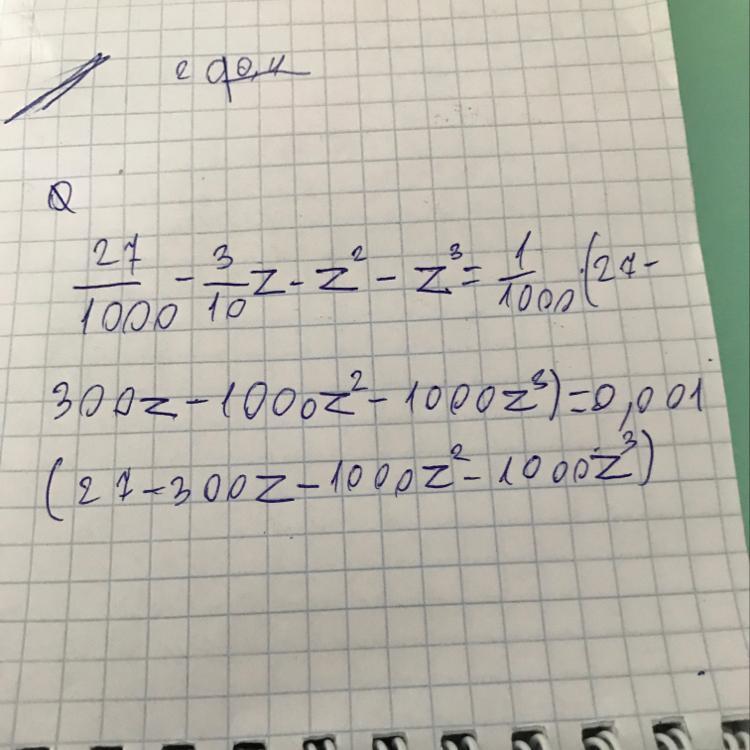 Q
27/1000 - 3/10 z - z² - z³ = 1/1000 · (27 -
300z - 1000z² - 1000z³) = 0,001
(27 - 300z - 1000z² - 1000z³)